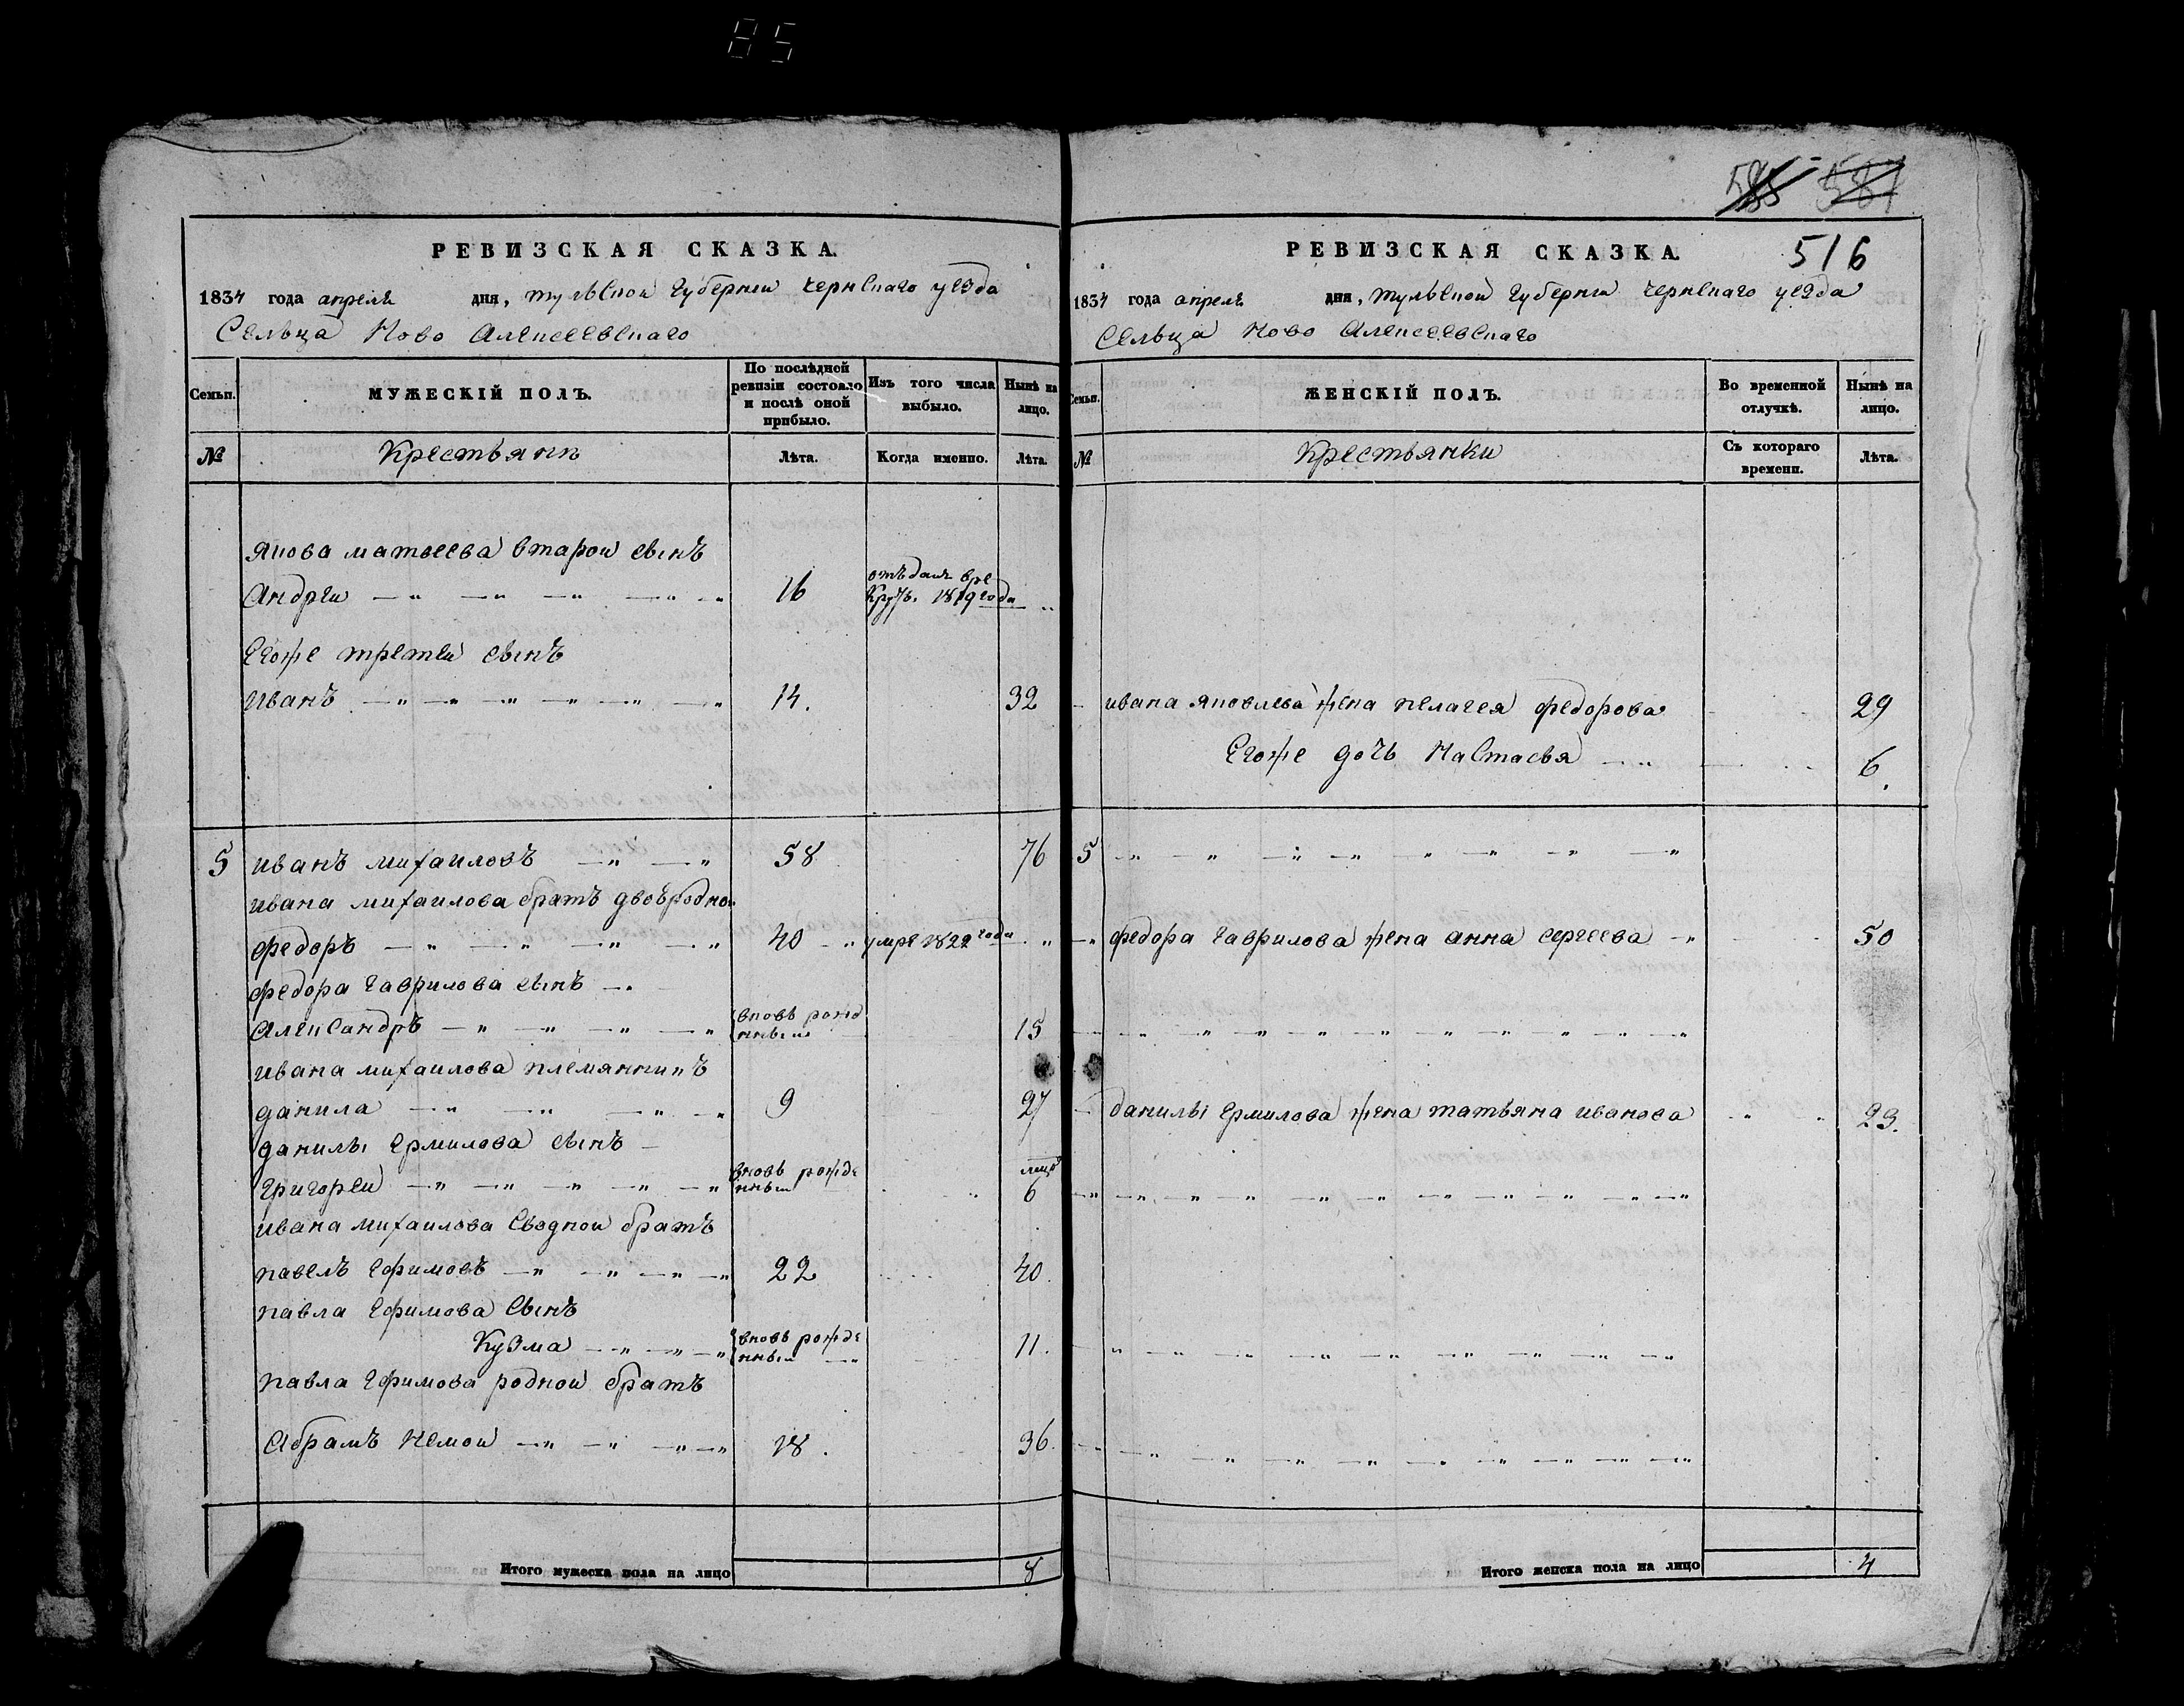 85
585 581
РЕВИЗСКАЯ СКАЗКА.
1834 года апреля дня, тульской губернии чернского уезда
Сельца Ново Алексеевскаго
Семьи.
МУЖЕСКІЙ ПОЛЪ.
По послѣдней ревизіи состояло и послѣ оной прибыло.
Изъ того числа выбыло.
Нынѣ на лицо.
№
Крестьяни
Лѣта.
Когда именно.
Лѣта.
Якова матвеева второй сынъ
Андреи 16 отъдан вре круты 1819 года
Егоже третеи сынъ
Иванъ 14. 32
5 иванъ михаиловъ 58 76
ивана михаилова братъ двоъродной
федоръ 40 умре 1822 года
федора гаврилова сынъ
Александръ вновь рожд нныи 15
ивана михаилова племянникъ
данила 9 27
данилы ермилова сынъ
григореи вновь рожде нныи 6
ивана михаилова сводной братъ
павелъ ефимовъ 22 40
павла ефимова сынъ
Кузма вновь рожде нныи 11.
павла ефимова родной братъ
Абрамъ немои 18. 36.
Итого мужеска пола на лицо 8
РЕВИЗСКАЯ СКАЗКА.
516
1834 года апреля дня, тульской губернии чернскаго уезда
Сельца Ново Алексеевскаго
Семьи.
ЖЕНСКІЙ ПОЛЪ.
Во временной отлучкѣ.
Нынѣ на лицо.
№
Крестьянки
Съ котораго времени.
Лѣта.
ивана яковлева жена пелагея федорова 29
Егоже дочь Настасья 6.
5
федора гаврилова жена анна сергеева 50
данилы ермилова жена татьяна иванова 23.
Итого женска пола на лицо 4